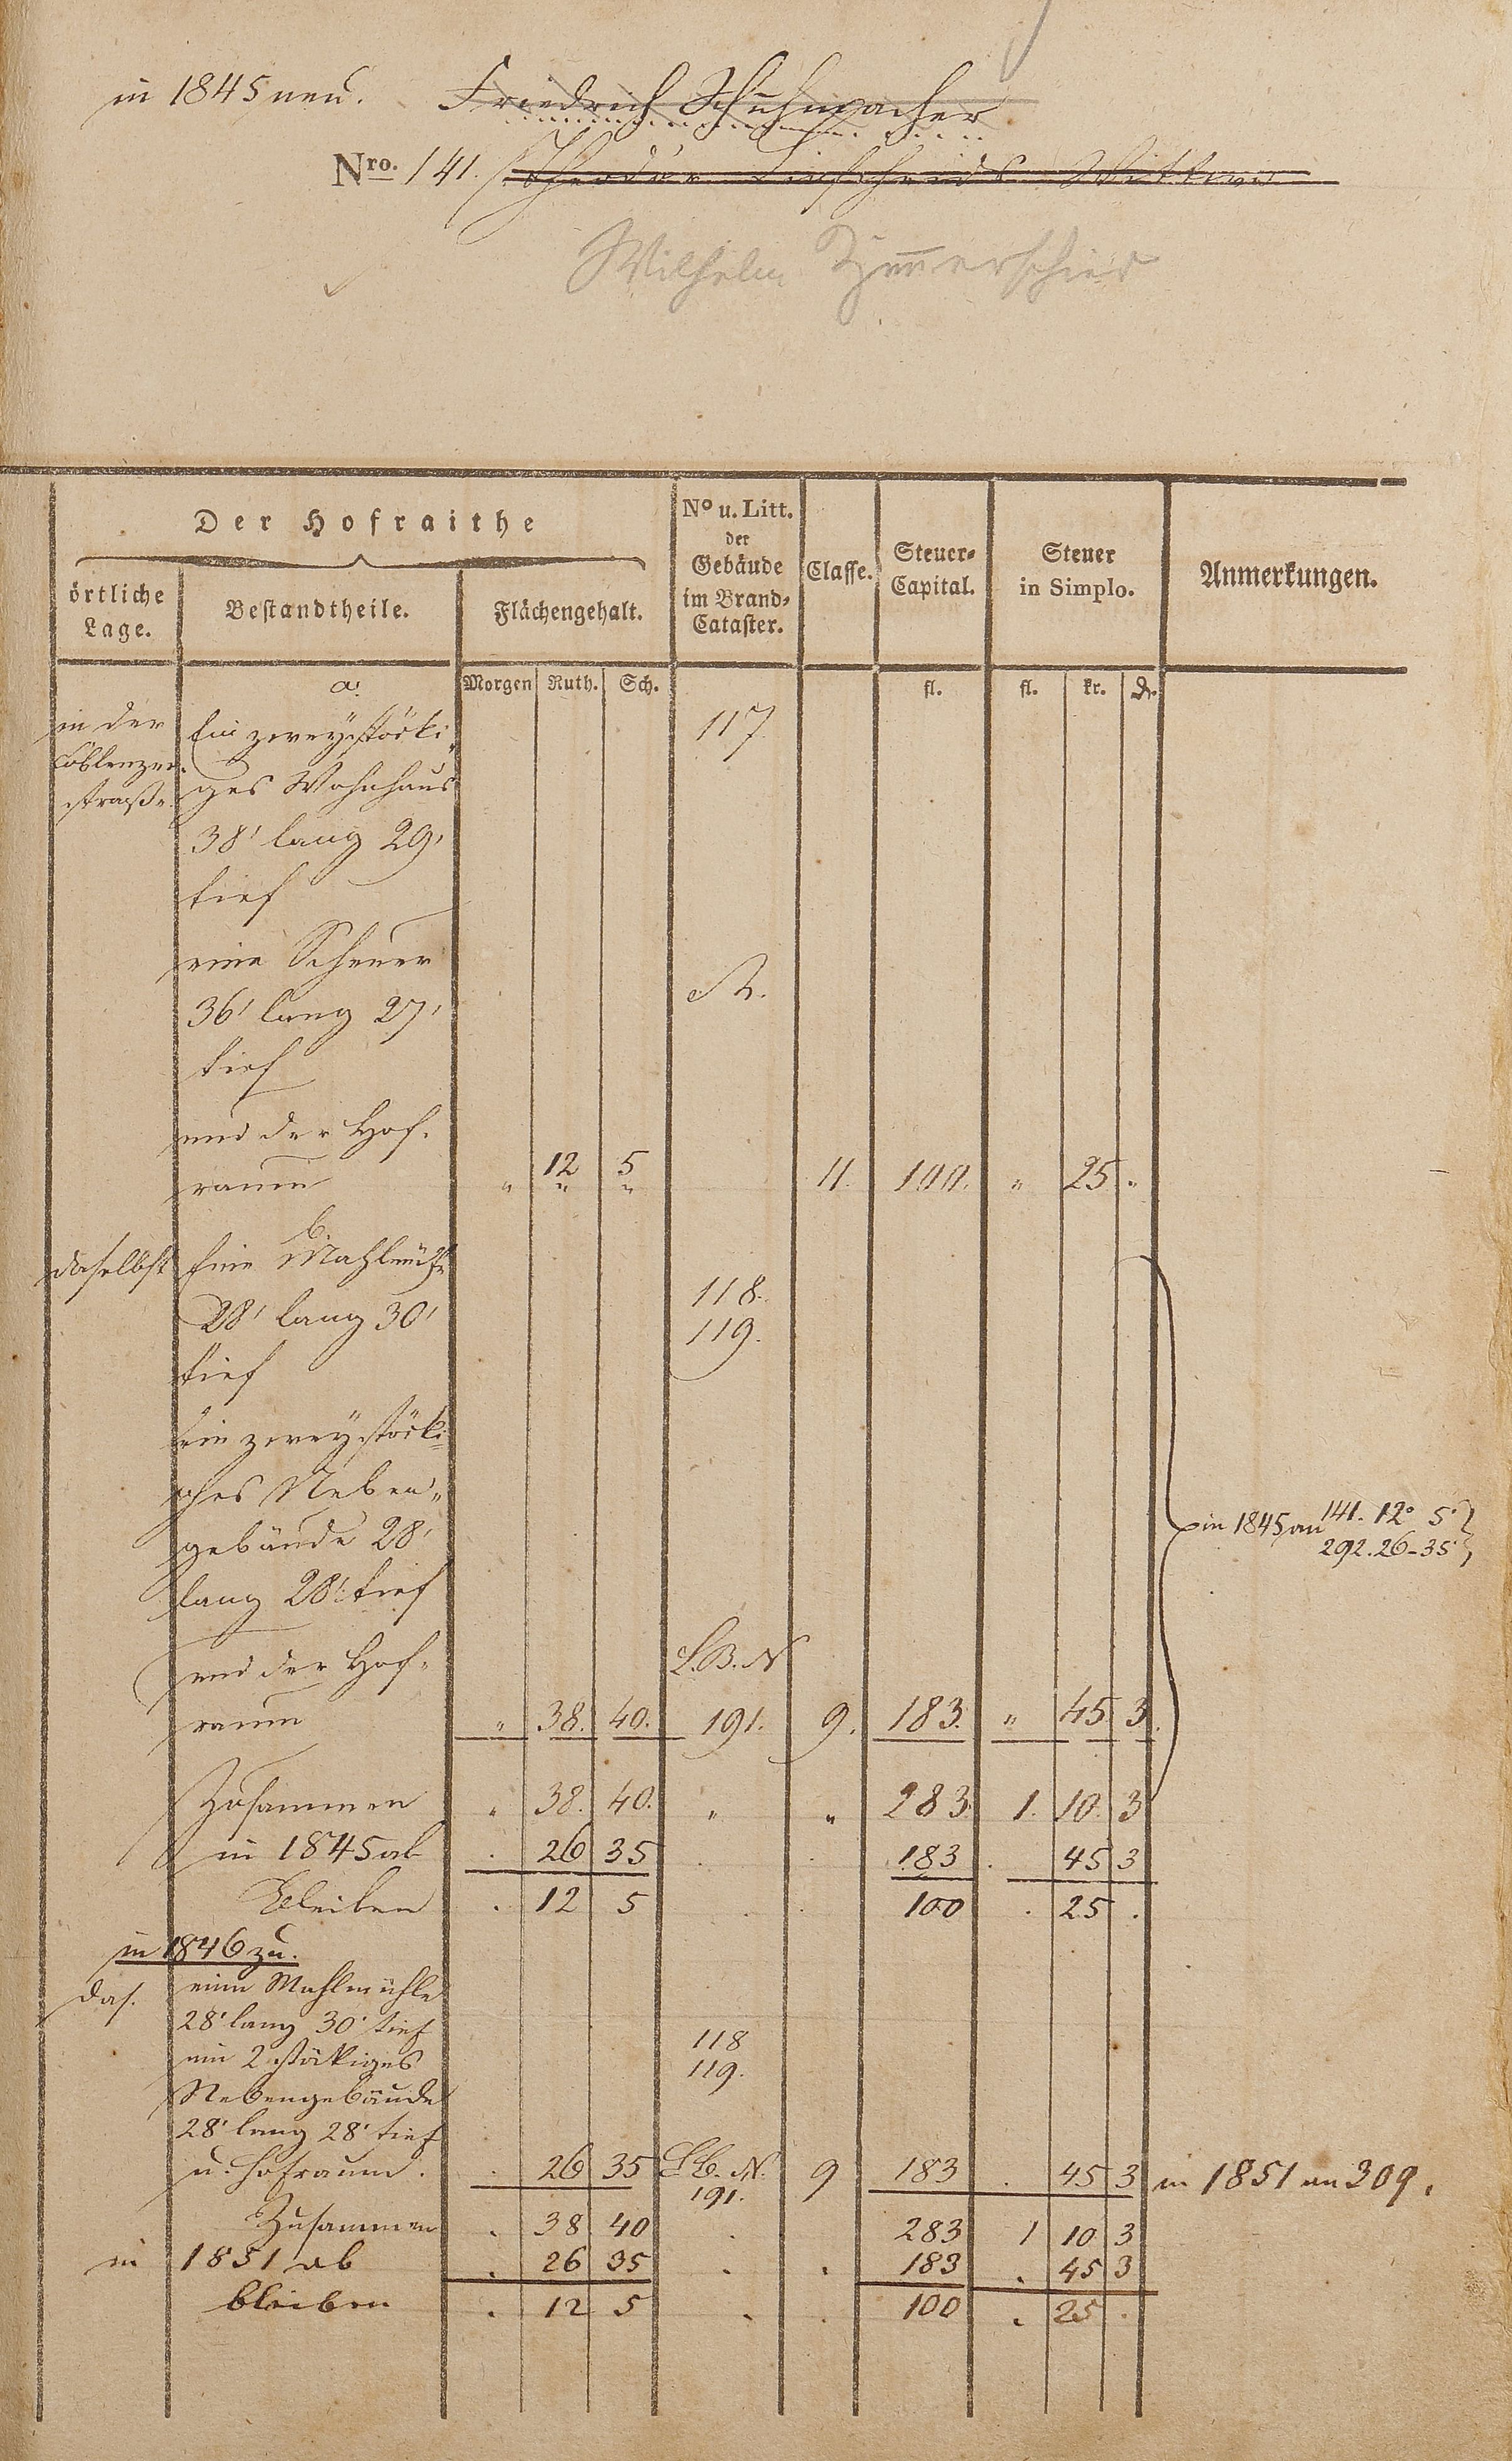 in 1845 neu. Friedrich Schuhmacher
Nro. 141. Theodor Wittwe
Wilhelm
Der Hofraithe
örtliche Lage.
Bestandtheile.
Flächengehalt.
No u. Litt. der Gebäude im Brand-Cataster.
Classe.
Steuer-Capital.
Steuer in Simplo.
Anmerkungen.
Morgen Ruth. Sch. fl. fl. kr. d.
a.
in der Ein zweystöcki- 117
Coblenzer- ges Wohnhaus
straße. 38' lang 29'
tief
eine Scheuer
36' lang 27' A.
tief
und der Hof-
raum " 12 5 11. 100. " 25 "
b.
daselbst Eine Mahlmühle
28' lang 30' 118.
119.
tief
ein zweystöcki-
ges Neben-
gebäude 28' in 1845 an 141. 12° 5'
292. 26-35'
lang 28' tief
und der Hof- L.B.N
raum " 38. 40. 191. 9. 183. " 45. 3.
Zusammen " 38. 40. " " 283. 1. 10. 3
in 1845 ab . 26 35 . . 183 . 45 3
bleiben . 12 5 . . 100 . 25 .
in 1846 zu.
das. eine Mahlmühle
28' lang 30' tief 118
ein 2 stökiges 119.
Nebengebäude
28' lang 28' tief
u. Hofraum. . 26 35 L.B. N. 191. 9 183 . 45 3 in 1851 an 309.
Zusammen . 38 40 . 283 1 10 3
in 1851 ab . 26 35 . . 183 . 45 3
bleiben . 12 5 . . 100 . 25 .